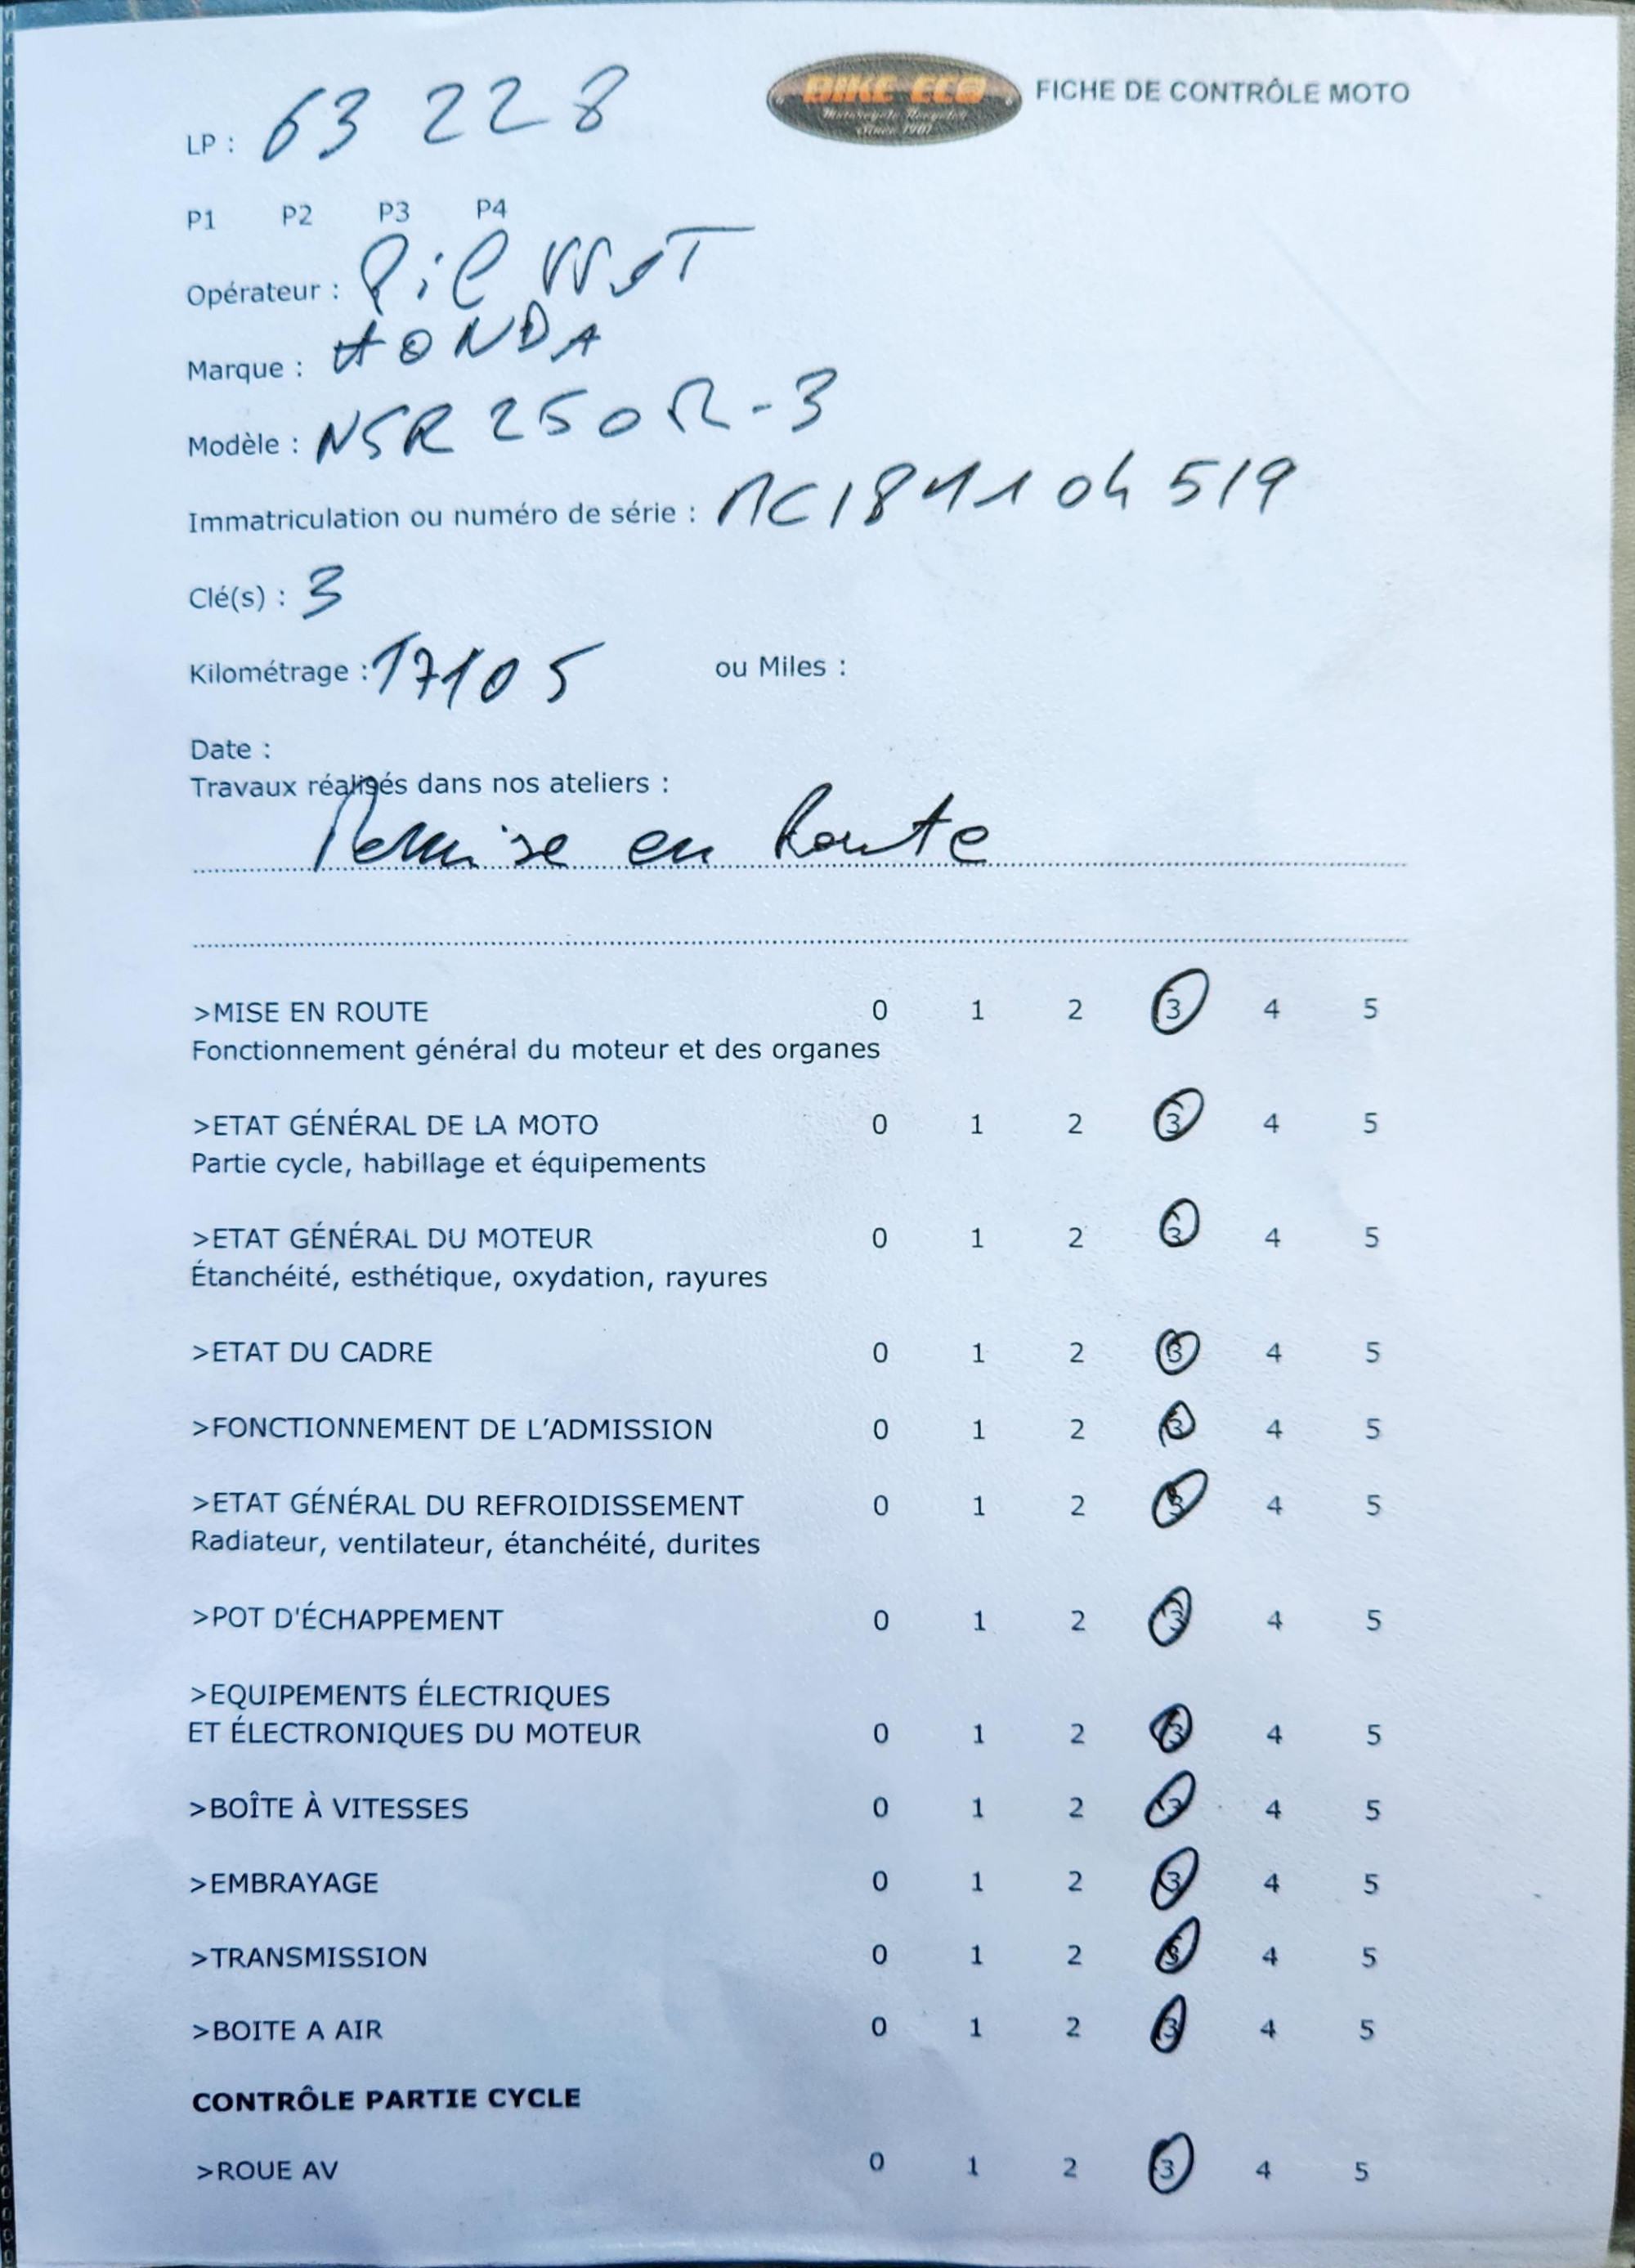 BIKE ECO
Motorcycle Recycled
Since 1901
FICHE DE CONTRÔLE MOTO
LP : 63 228
P1 P2 P3 P4
Opérateur :
Marque : HONDA
Modèle : NSR 250 R-3
Immatriculation ou numéro de série : MC18 11 04 519
Clé(s) : 3
Kilométrage : 17105 ou Miles :
Date :
Travaux réalisés dans nos ateliers :
Remise en Route
>MISE EN ROUTE 0 1 2 3 4 5
Fonctionnement général du moteur et des organes
>ETAT GÉNÉRAL DE LA MOTO 0 1 2 3 4 5
Partie cycle, habillage et équipements
>ETAT GÉNÉRAL DU MOTEUR 0 1 2 3 4 5
Étanchéité, esthétique, oxydation, rayures
>ETAT DU CADRE 0 1 2 3 4 5
>FONCTIONNEMENT DE L'ADMISSION 0 1 2 3 4 5
>ETAT GÉNÉRAL DU REFROIDISSEMENT 0 1 2 3 4 5
Radiateur, ventilateur, étanchéité, durites
>POT D'ÉCHAPPEMENT 0 1 2 3 4 5
>EQUIPEMENTS ÉLECTRIQUES
ET ÉLECTRONIQUES DU MOTEUR 0 1 2 3 4 5
>BOÎTE À VITESSES 0 1 2 3 4 5
>EMBRAYAGE 0 1 2 3 4 5
>TRANSMISSION 0 1 2 3 4 5
>BOITE A AIR 0 1 2 3 4 5
CONTRÔLE PARTIE CYCLE
>ROUE AV 0 1 2 3 4 5